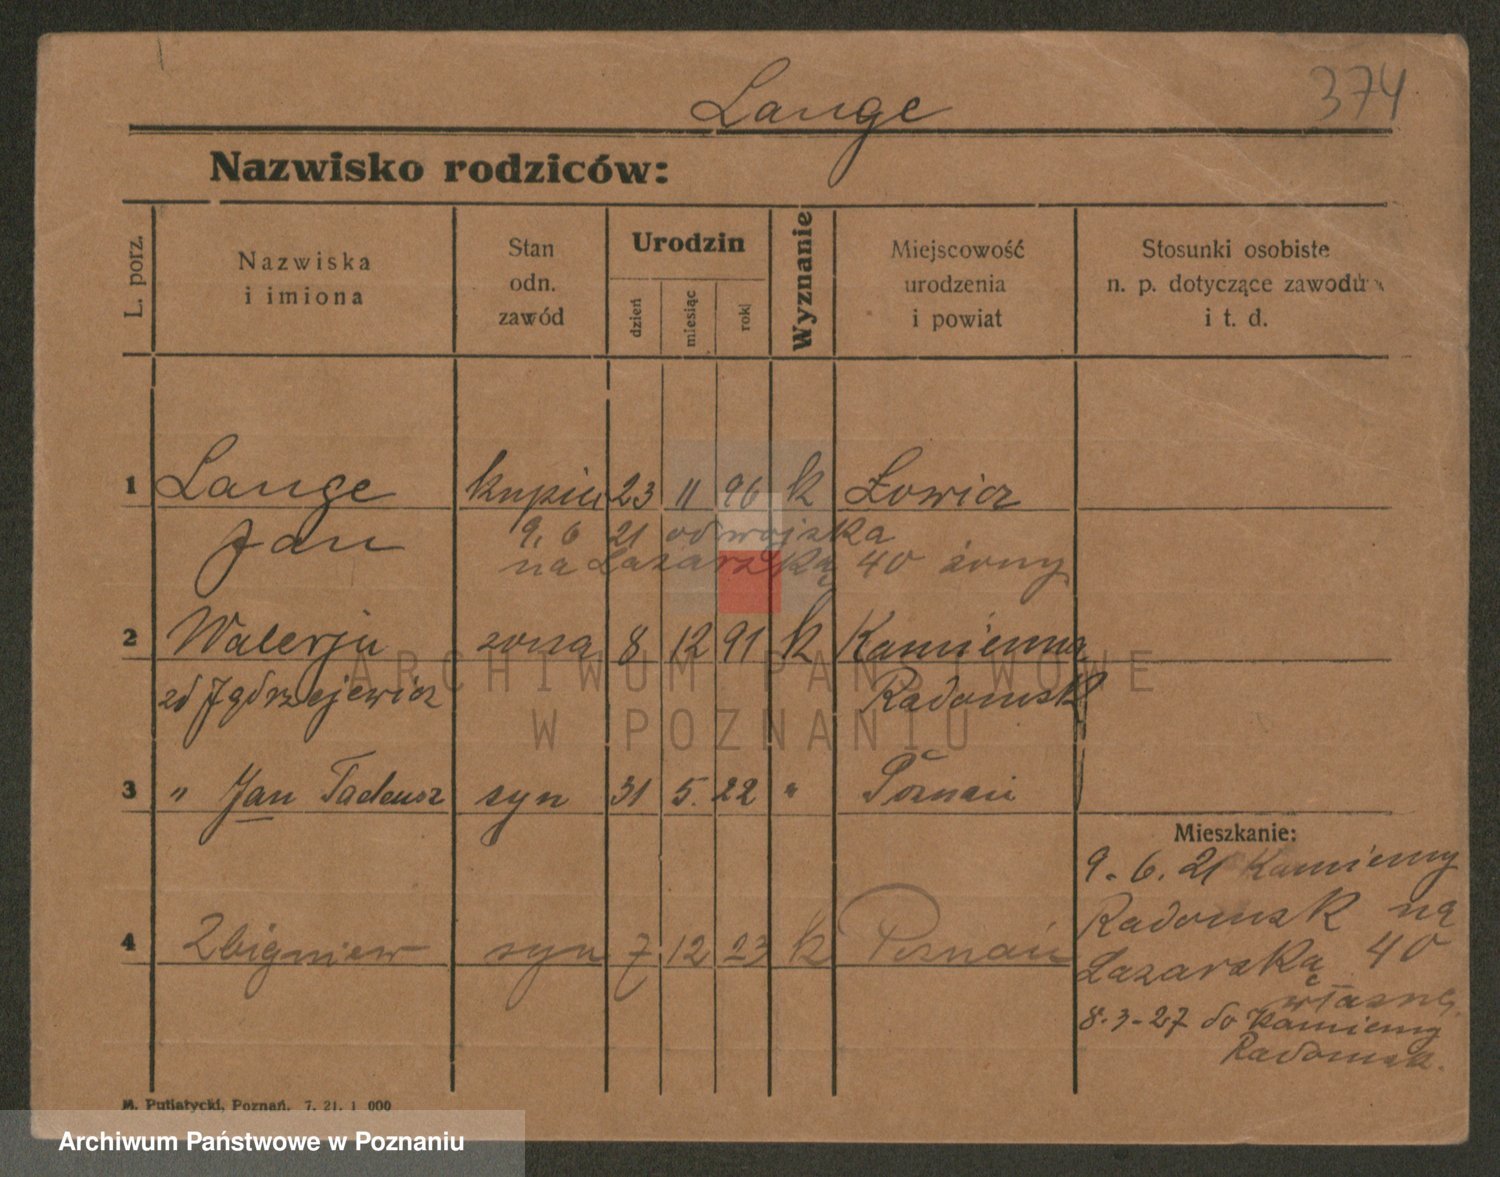 374
Lange
Nazwisko rodziców:
L. porz.
Nazwiska
i imiona
Stan
odn.
zawód
Urodzin
dzień
miesiąc
rok
Wyznanie
Miejscowość
urodzenia
i powiat
Stosunki osobiste
n. p. dotyczące zawodu
i t. d.
1 Lange kupiec 23 11 96 k Łowicz
Jan
9. 6 21 od wojska
na Łazarską 40 żony
2 Walerja żona 8 12 91 k Kamienna
zd Jędrzejewicz Radomsk
3 " Jan Tadeusz syn 31 5. 22 " Poznań
4 Zbigniew syn 7 12 23 k Poznań
Mieszkanie:
9. 6. 21 Kamienny
Radomsk na
Łazarską 40
własne
8.3-27 do Kamienny
Radomsk.
M. Putiatycki, Poznań. 7. 21. 1 000
ARCHIWUM PAŃSTWOWE
W POZNANIU
Archiwum Państwowe w Poznaniu